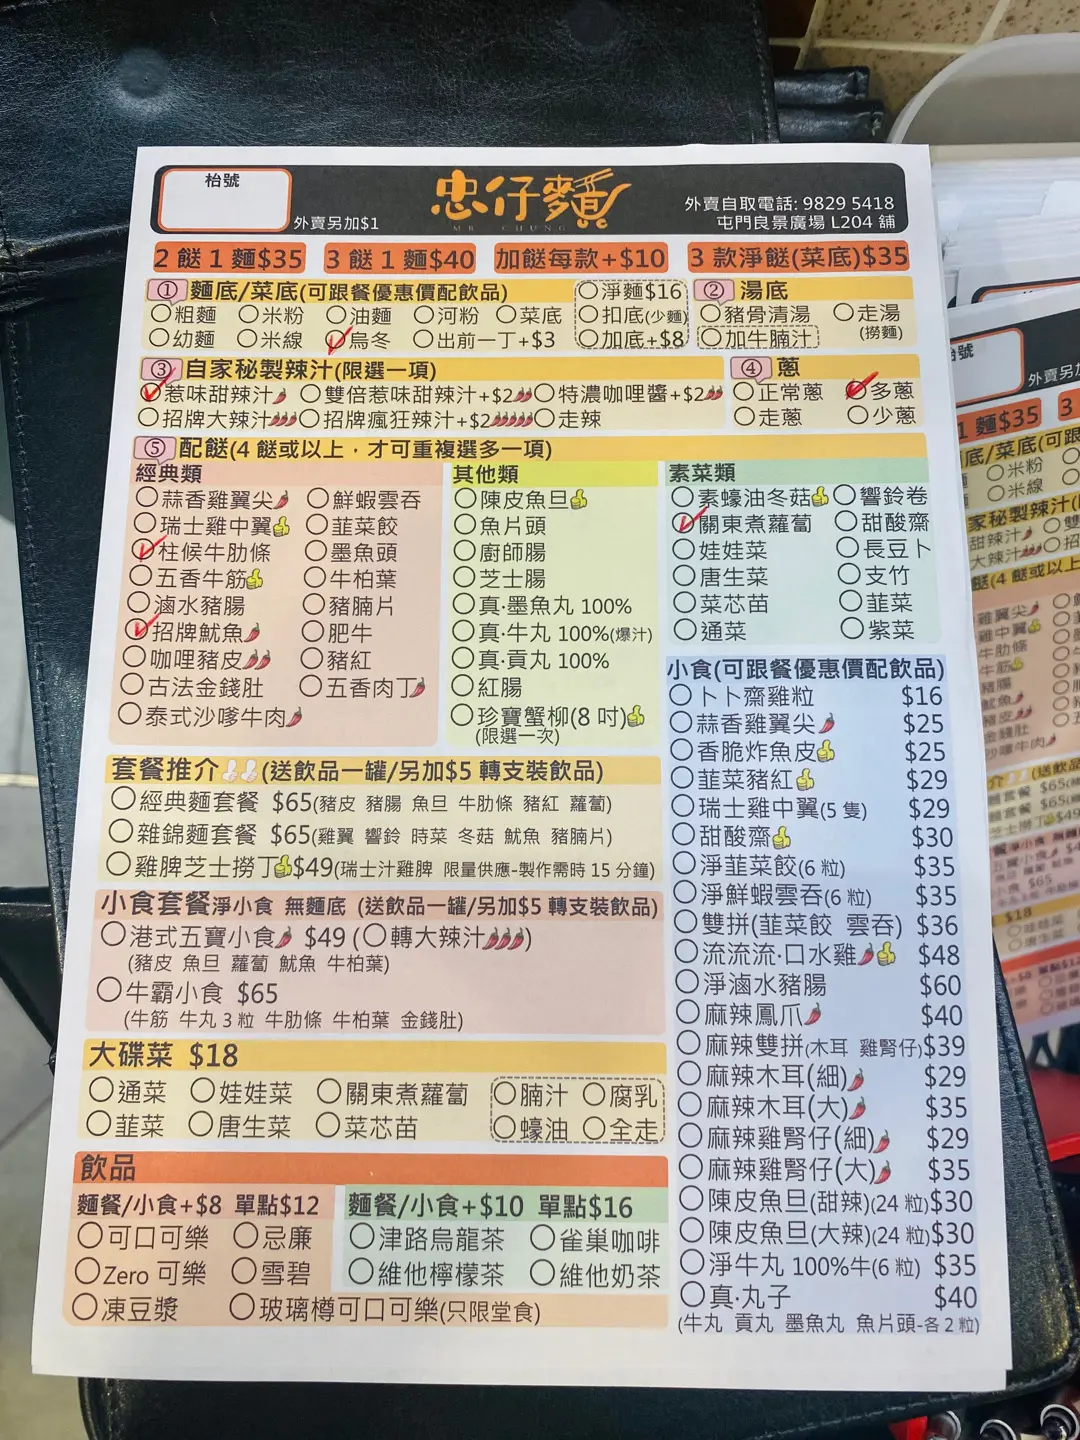 枱號
外賣另加$1
忠仔麵
MR. CHUNG
外賣自取電話: 9829 5418
屯門良景廣場 L204 舖
2 餸 1 麵$35 3 餸 1 麵$40 加餸每款+$10 3 款淨餸(菜底)$35
① 麵底/菜底(可跟餐優惠價配飲品)
粗麵 米粉 油麵 河粉 菜底
幼麵 米線 烏冬 出前一丁+$3
淨麵$16
扣底(少麵)
加底+$8
② 湯底
豬骨清湯 走湯
加牛腩汁 (撈麵)
③ 自家秘製辣汁(限選一項)
惹味甜辣汁 雙倍惹味甜辣汁+$2 特濃咖哩醬+$2
招牌大辣汁 招牌瘋狂辣汁+$2 走辣
④ 蔥
正常蔥 多蔥
走蔥 少蔥
⑤ 配餸(4 餸或以上，才可重複選多一項)
經典類
蒜香雞翼尖 鮮蝦雲吞
瑞士雞中翼 韮菜餃
柱候牛肋條 墨魚頭
五香牛筋 牛柏葉
滷水豬腸 豬腩片
招牌魷魚 肥牛
咖哩豬皮 豬紅
古法金錢肚 五香肉丁
泰式沙嗲牛肉
其他類
陳皮魚旦
魚片頭
廚師腸
芝士腸
真·墨魚丸 100%
真·牛丸 100%(爆汁)
真·貢丸 100%
紅腸
珍寶蟹柳(8 吋)
(限選一次)
素菜類
素蠔油冬菇 響鈴卷
關東煮蘿蔔 甜酸齋
娃娃菜 長豆卜
唐生菜 支竹
菜芯苗 韮菜
通菜 紫菜
套餐推介 (送飲品一罐/另加$5 轉支裝飲品)
經典麵套餐 $65(豬皮 豬腸 魚旦 牛肋條 豬紅 蘿蔔)
雜錦麵套餐 $65(雞翼 響鈴 時菜 冬菇 魷魚 豬腩片)
雞脾芝士撈丁 $49(瑞士汁雞脾 限量供應-製作需時 15 分鐘)
小食套餐淨小食 無麵底 (送飲品一罐/另加$5 轉支裝飲品)
港式五寶小食 $49 ( 轉大辣汁 )
(豬皮 魚旦 蘿蔔 魷魚 牛柏葉)
牛霸小食 $65
(牛筋 牛丸 3 粒 牛肋條 牛柏葉 金錢肚)
大碟菜 $18
通菜 娃娃菜 關東煮蘿蔔 腩汁 腐乳
韮菜 唐生菜 菜芯苗 蠔油 全走
飲品
麵餐/小食+$8 單點$12
可口可樂 忌廉
Zero 可樂 雪碧
凍豆漿 玻璃樽可口可樂(只限堂食)
麵餐/小食+$10 單點$16
津路烏龍茶 雀巢咖啡
維他檸檬茶 維他奶茶
小食(可跟餐優惠價配飲品)
卜卜齋雞粒 $16
蒜香雞翼尖 $25
香脆炸魚皮 $25
韮菜豬紅 $29
瑞士雞中翼(5 隻) $29
甜酸齋 $30
淨韮菜餃(6 粒) $35
淨鮮蝦雲吞(6 粒) $35
雙拼(韮菜餃 雲吞) $36
流流流·口水雞 $48
淨滷水豬腸 $60
麻辣鳳爪 $40
麻辣雙拼(木耳 雞腎仔)$39
麻辣木耳(細) $29
麻辣木耳(大) $35
麻辣雞腎仔(細) $29
麻辣雞腎仔(大) $35
陳皮魚旦(甜辣)(24 粒)$30
陳皮魚旦(大辣)(24 粒)$30
淨牛丸 100%牛(6 粒) $35
真·丸子 $40
(牛丸 貢丸 墨魚丸 魚片頭-各 2 粒)